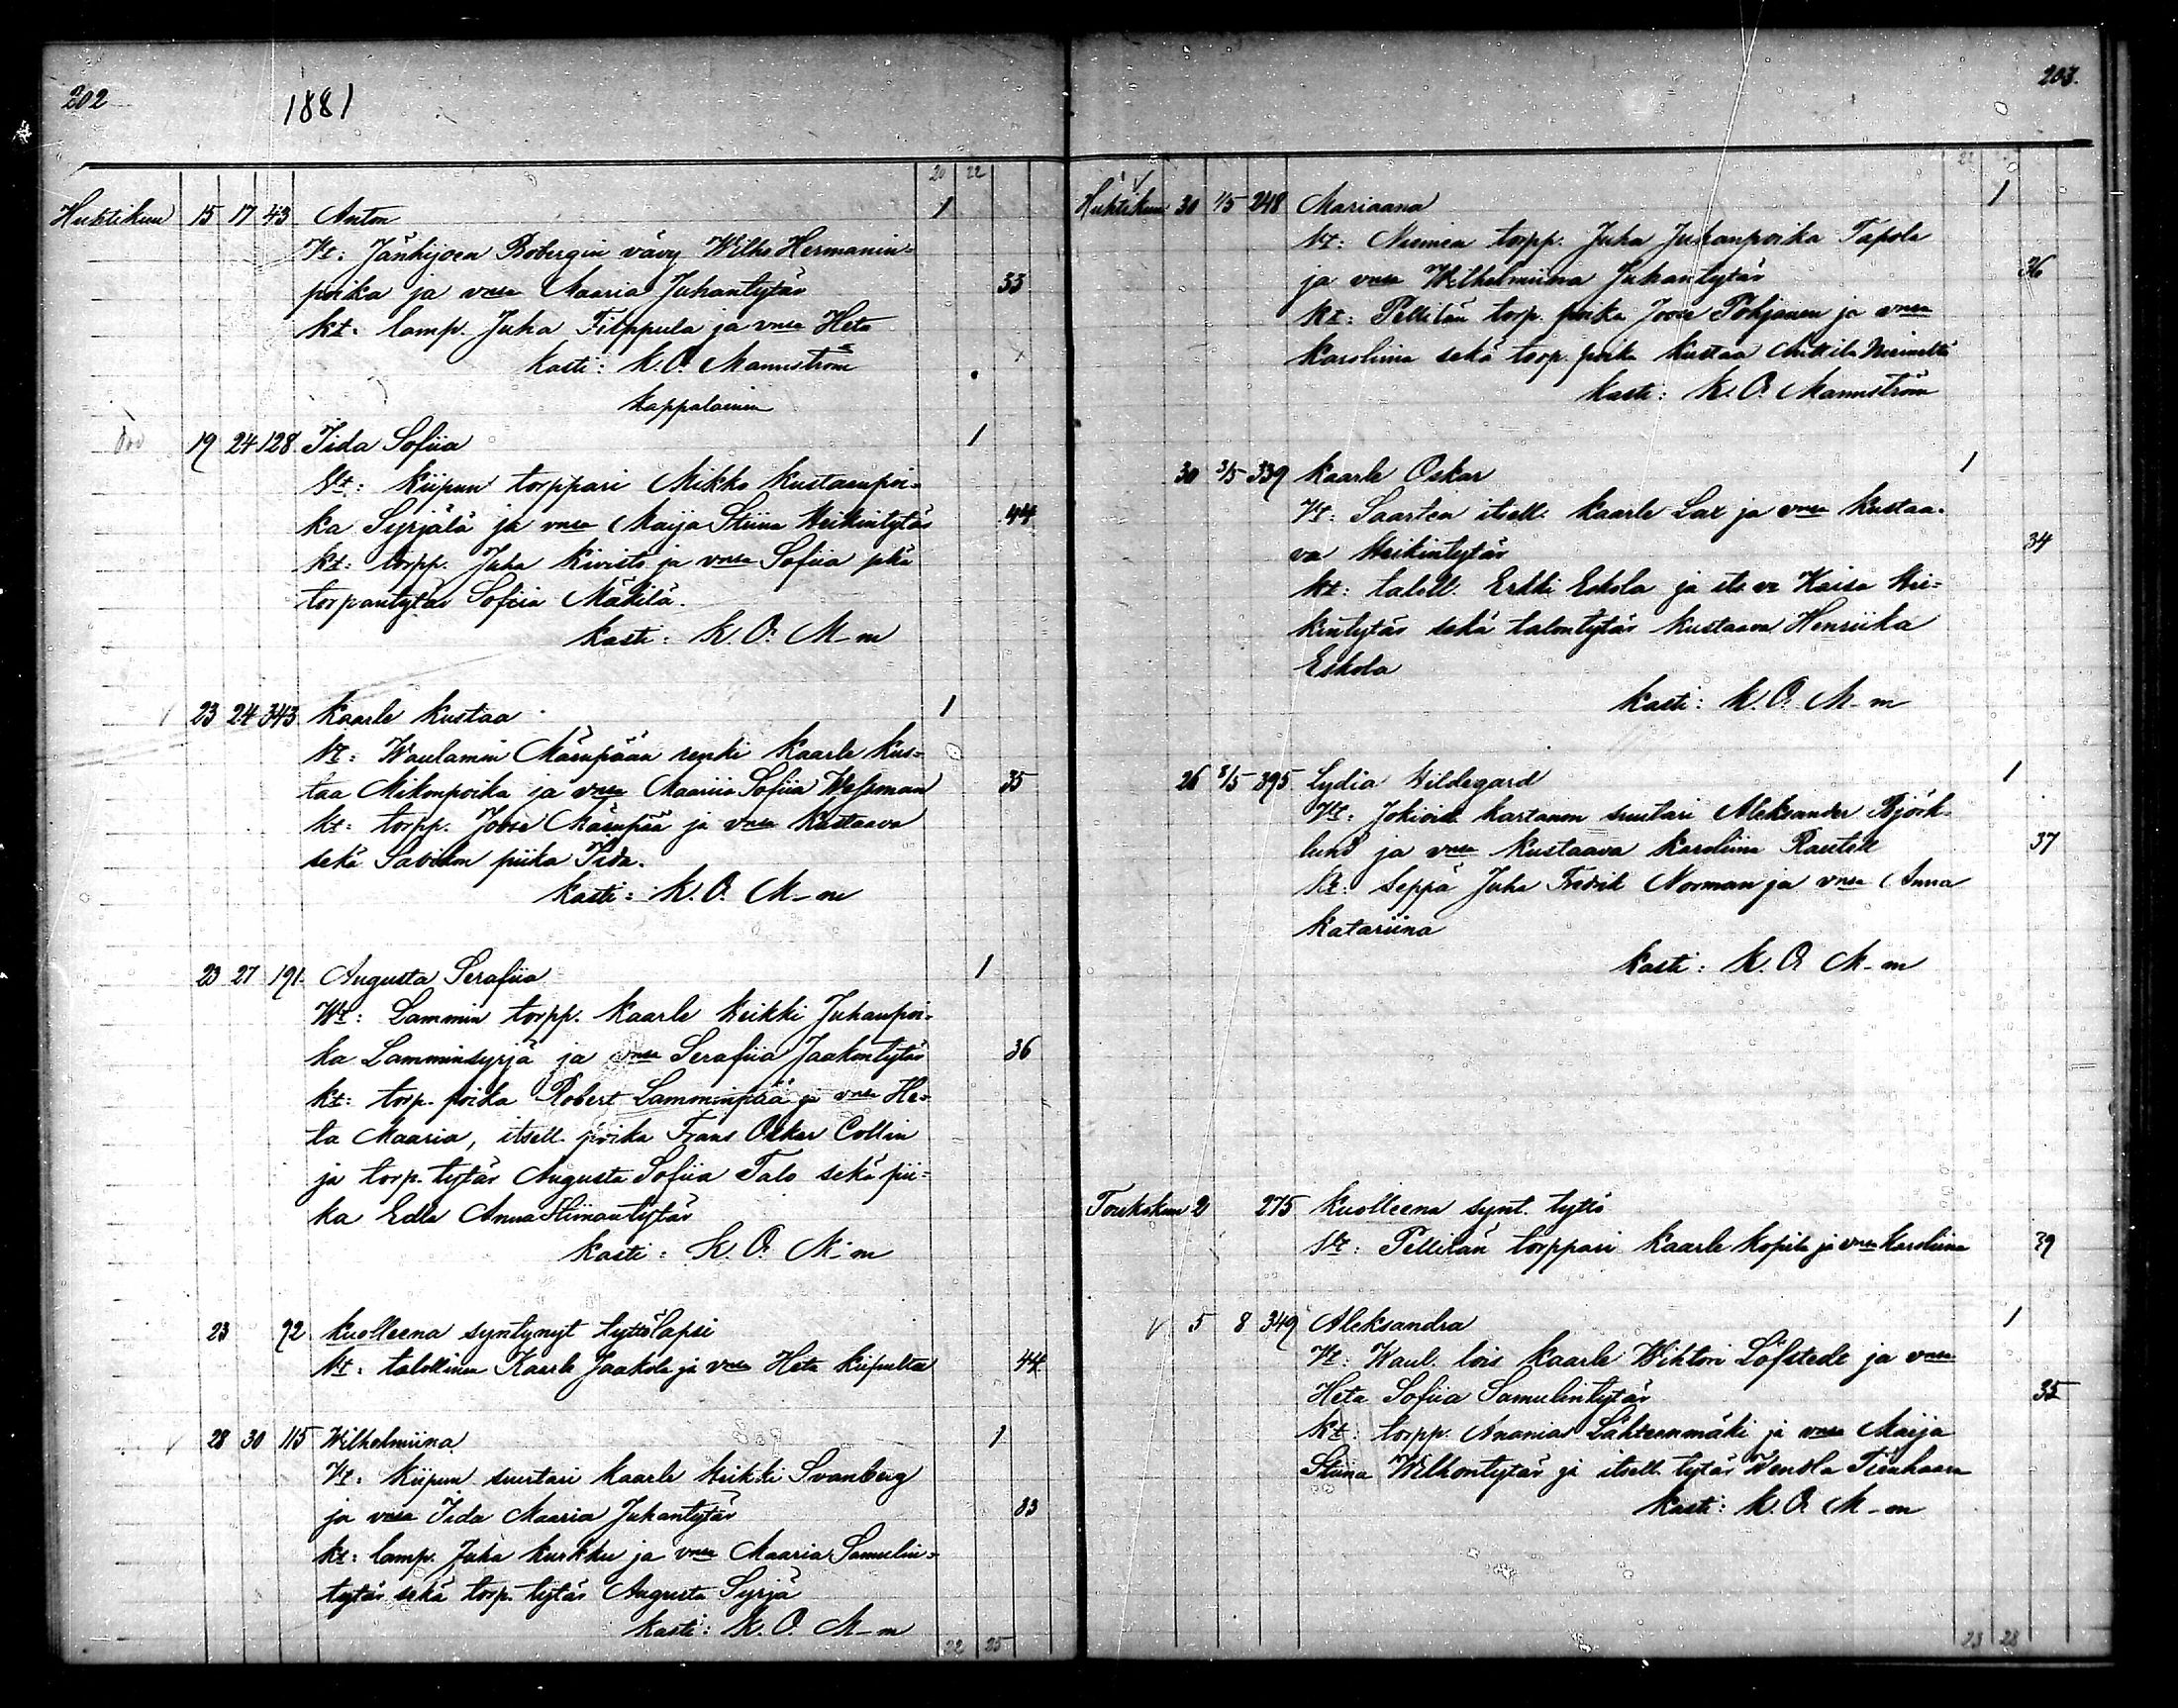 202
1881
20 22
Huhtikuu 15 17 43 Anton 1
Vt: Jänhijoen Bobergin vävy Wilho Hermanin=
poika ja vmsa Maaria Juhantytär 33
kt: lamp. Juha Filppula ja vmsa Heta
kasti: K. O. Mannström
kappalainen
19 24 128. Iida Sofiia 1
Vt: Kiipun torppari Mikko Kustaanpoi=
ka Syrjälä ja vmsa Maija Stiina Heikintytär 44
kt: torpp. Juha Kivistö ja vmsa Sofiia
torpantytär Sofiia Mäkilä.
kasti: K. O. M-m
23 24 343 Kaarle Kustaa 1
Vt: Waulamin Mäenpään renki Kaarle Kus=
taa Mikonpoika ja vmsa Maaria Sofiia Wessman 35
kt: torpp. Joose Mäenpää ja vmsa Kustaava
sekä piika Iida.
kasti: K. O. M-m
23 27 191. Augusta Serafiia 1
Vt: Lammin torpp. Kaarle Heikki Juhanpoi=
ka Lamminsyrjä ja vmsa Serafiia Jaakontytär 36
kt: torp. poika Robert Lamminpää ja vmsa He=
ta Maaria, itsell. poika Frans Oskar Collin
ja torp. tytär Augusta Sofiia Talo sekä pii=
ka Edla Anna Stiinantytär
kasti: K. O. M-m
23 92 Kuolleena syntynyt tyttölapsi
Vt: talollinen Kaarle Jaakola ja vmsa Heta Kiipulta 44
28 30 115 Wilhelmiina 1
Vt: Kiipun suutari Kaarle Heikki Svanberg
ja vmsa Iida Maaria Juhantytär 33
kt: lamp. Juha Kurkku ja vmsa Maaria Samulin=
tytär sekä torp. tytär Augusta Syrjä
kasti: K. O. M-m
22 25
203.
22
Huhtikuu 30 1/5 248 Mariaana 1
Vt: Niemen torpp. Juha Juhanpoika Tapola
ja vmsa Wilhelmiina Juhantytär 36
kt: Pellilän torp. poika Joose Pohjanen ja vmsa
Karoliina sekä torp. poika Kustaa Anttila Niemeltä
kasti: K. O. Mannström
30 3/5 339 Kaarle Oskar 1
Vt: Saarten itsell. Kaarle Lax ja vmsa Kustaa=
va Heikintytär 34
kt: taloll. Erkki Eskola ja Kaisa Hei=
kintytär sekä talontytär Kustaava Henriika
Eskola
kasti: K. O. M-m
26 8/5 395 Lydia Hildegard 1
Vt: Jokioisten kartanon suutari Aleksander Björk=
lund ja vmsa Kustaava Karoliina Rautell 37
kt: Seppä Juha Fredrik Norman ja vmsa Anna
Katariina
kasti: K. O. M-m
Toukokuu 2 275 Kuolleena synt. tyttö
Vt: Pellilän torppari Kaarle Kopila ja vmsa Karoliina 39
5 8 349 Aleksandra 1
Vt: Waul. lois Kaarle Wihtori Löfstedt ja vmsa
Heta Sofiia Samulintytär 35
kt: torpp. Ananias Lähteenmäki ja vmsa Maija
Stiina Wilhontytär ja itsell. tytär Wendla Tienhaara
kasti: K. O. M-m
23 28